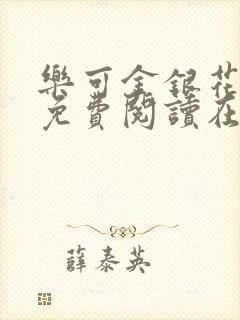 樂可金銀花
免費閱讀在
薛泰英